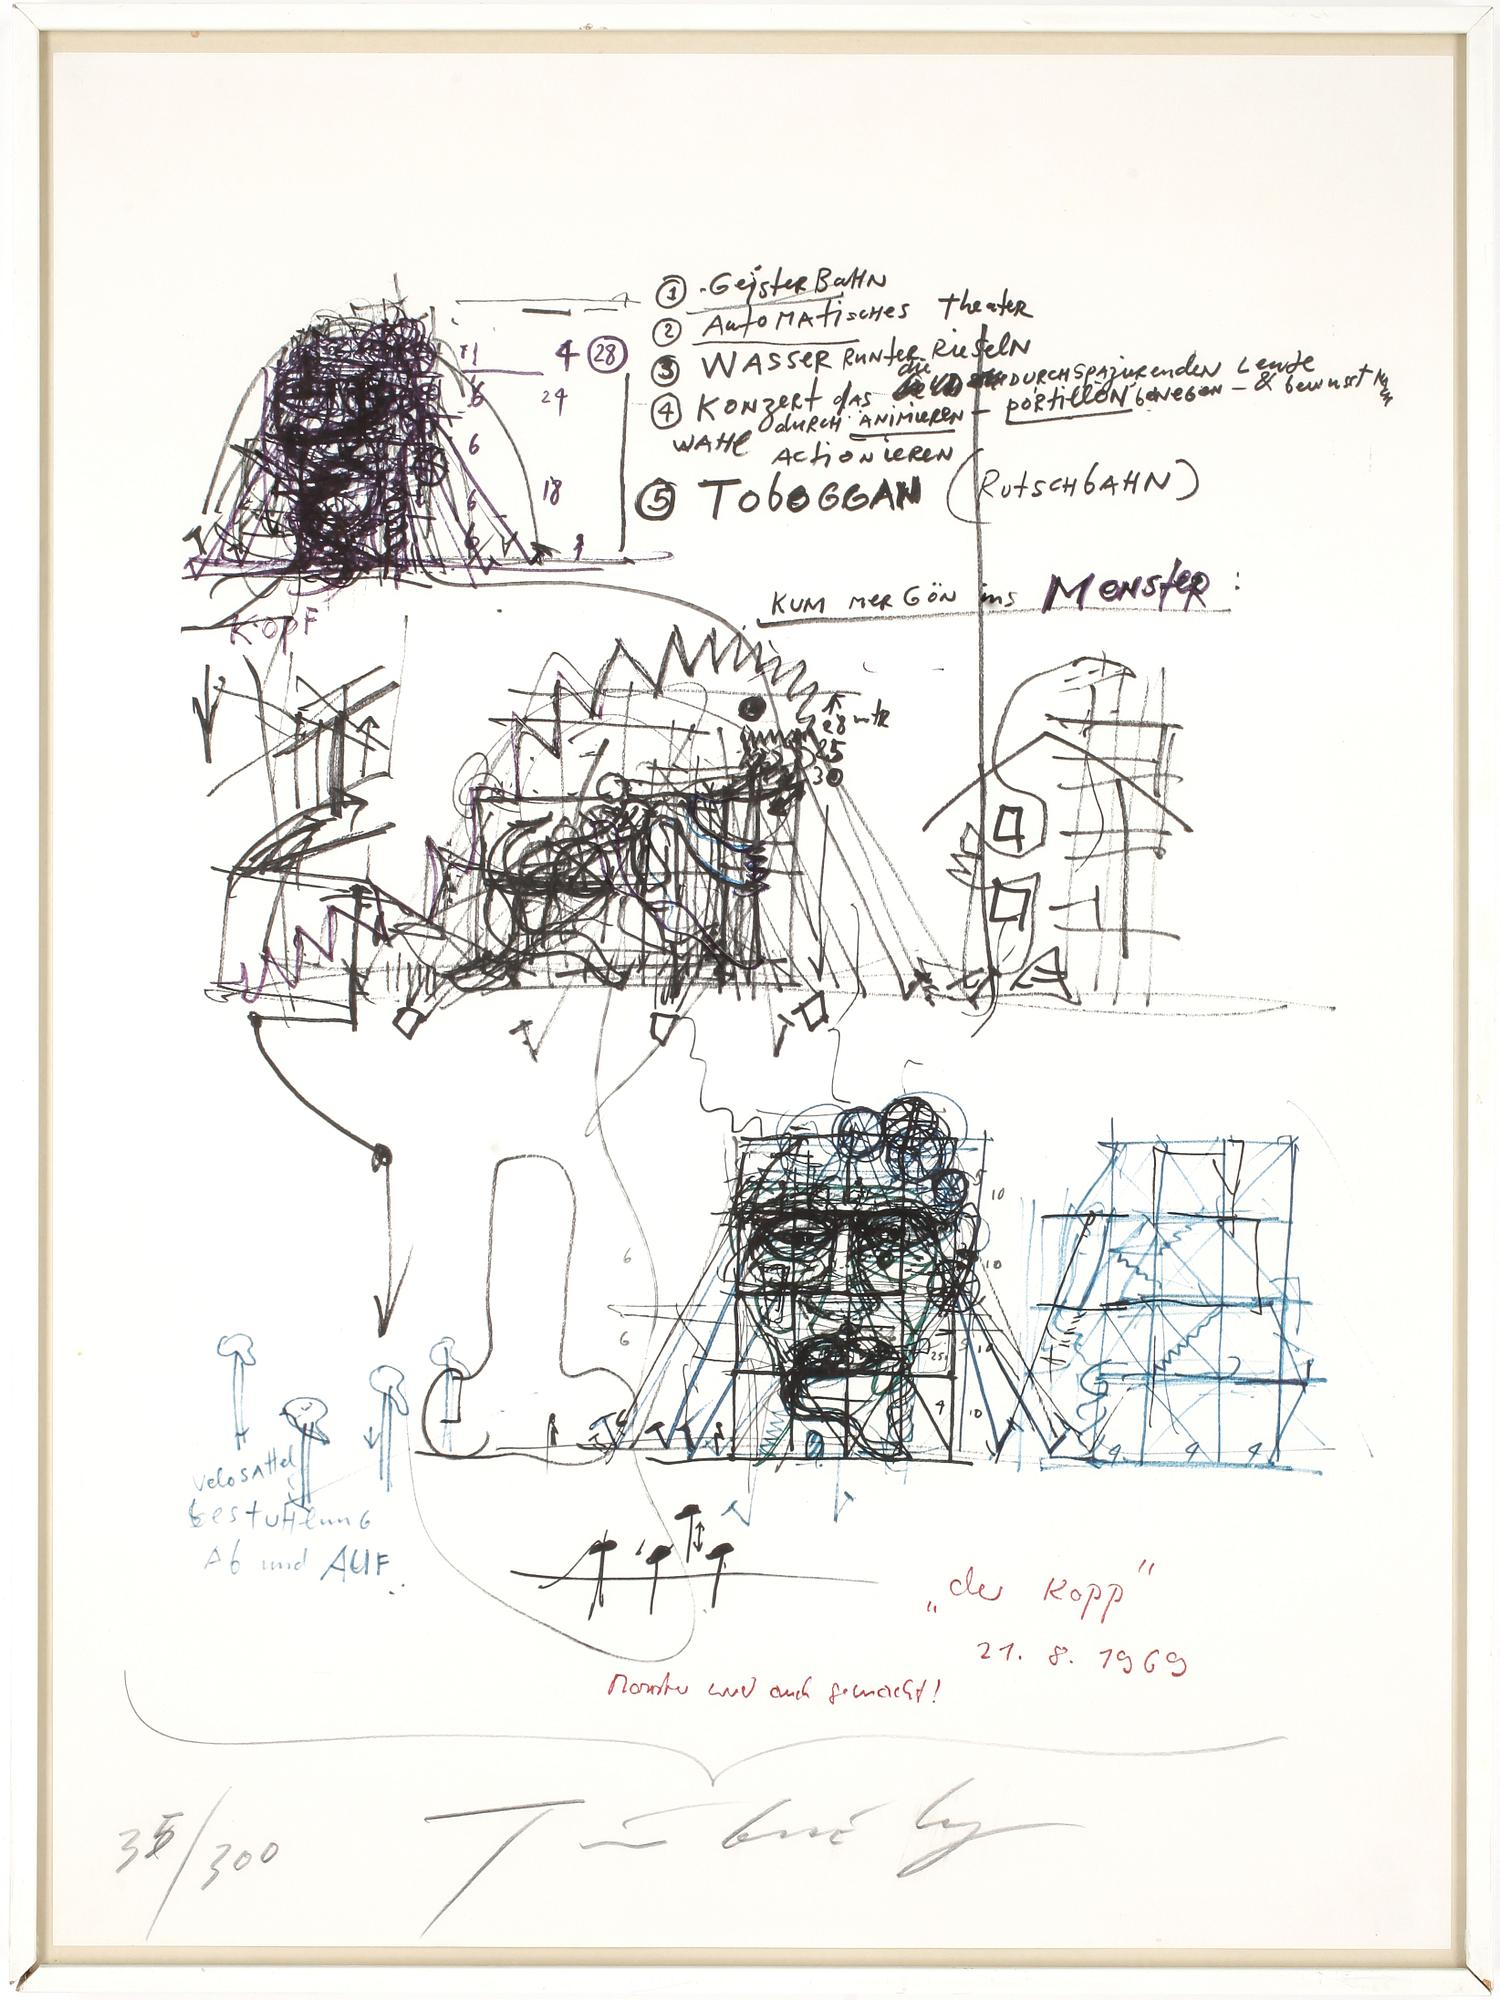 ① GeisterBahn
② AutoMAtiscHes theater
③ WASSER RunteR Rieseln
④ Konzert das die DURCHSPAZIERENDEN Leute
durch ANIMIEREN - & bewusst
WAHL ActionieREN
⑤ TOBOGGAN (RutSCHbAHN)
T1 4 28
6 24
6
6 18
6
KOPF
KUM MER GÖN ins MONSteR :
28 mtr
25
30
10
6 10
6 25 10
4 10
4 4 4
Velosattel
bestuhlung
Ab und AUF
„der Kopp"
21. 8. 1969
Monster wird auch gemacht!
/300 Tinguely